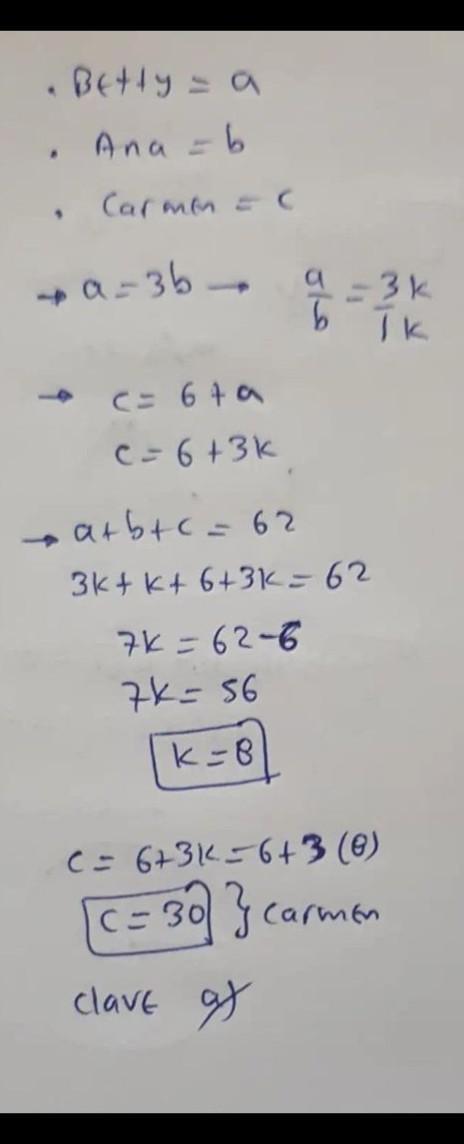 . Betty = a
. Ana = b
. Carmen = c
→ a = 3b → a/b = 3k/1k
→ c = 6 + a
c = 6 + 3k
→ a + b + c = 62
3k + k + 6 + 3k = 62
7k = 62 - 6
7k = 56
k = 8
c = 6 + 3k = 6 + 3 (8)
c = 30 } carmen
clave